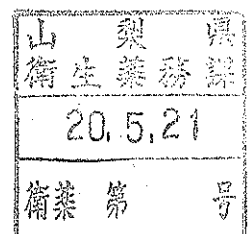 山梨県
衛生薬務課
20.5.21
衛薬 第 号